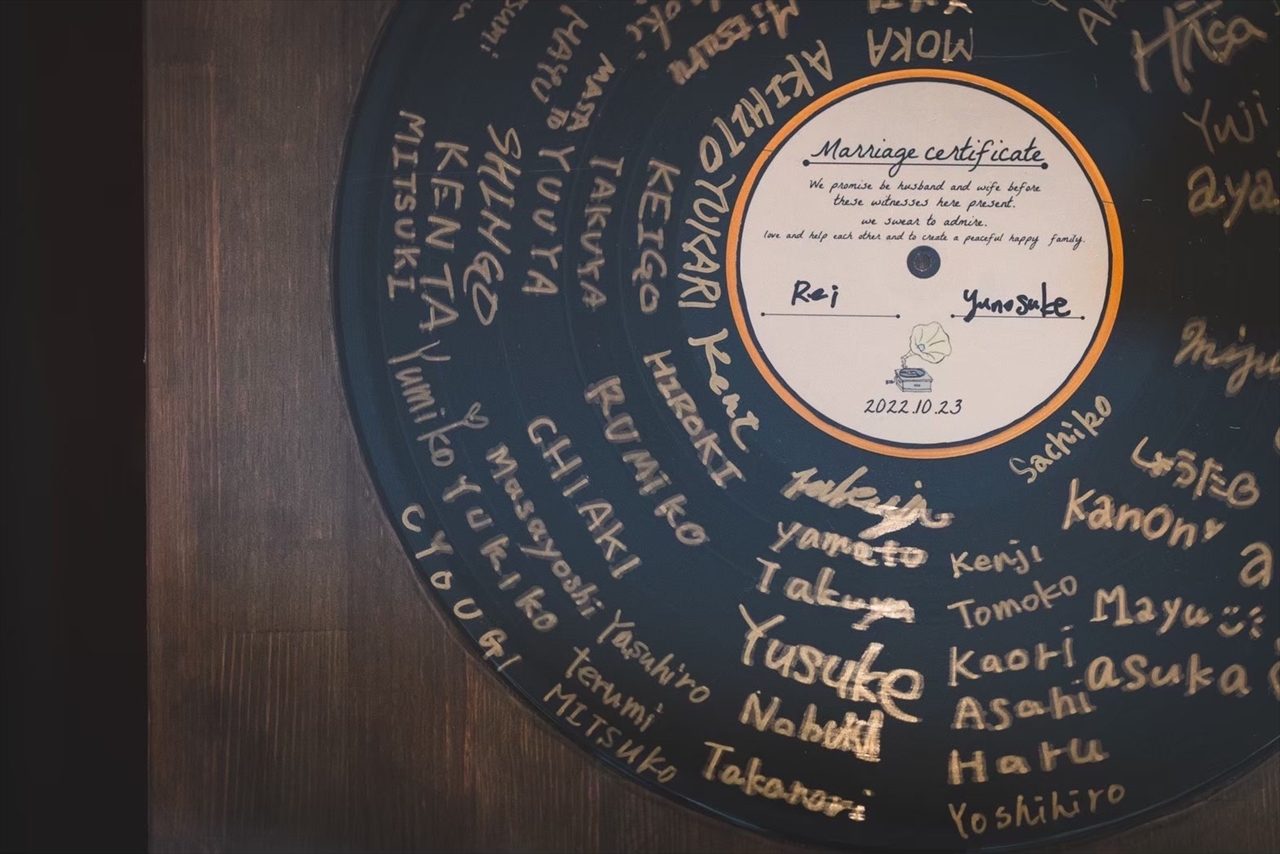 Marriage certificate
We promise be husband and wife before
these witnesses here present.
we swear to admire.
love and help each other and to create a peaceful happy family.
Rei
Yunosuke
2022.10.23
MOKA
AKIHITO
YUKARI
Kent
Mitsuru
KEIGO
HIROKI
TAKUYA
RUMiKO
MAYU
MASATO
YUUYA
CHIAKI
SHINGO
Masayoshi
KENTA
YUKiko
MITSUKI
Yumiko
CYOUGI
Yasuhiro
terumi
MITSUKO
yamato
Takuya
Yusuke
Nobuki
Takanori
Sachiko
Kenji
Tomoko
Kaori
Asahi
Haru
Yoshihiro
しょうた
Kanon
Mayu
asuka
Hisa
Yuji